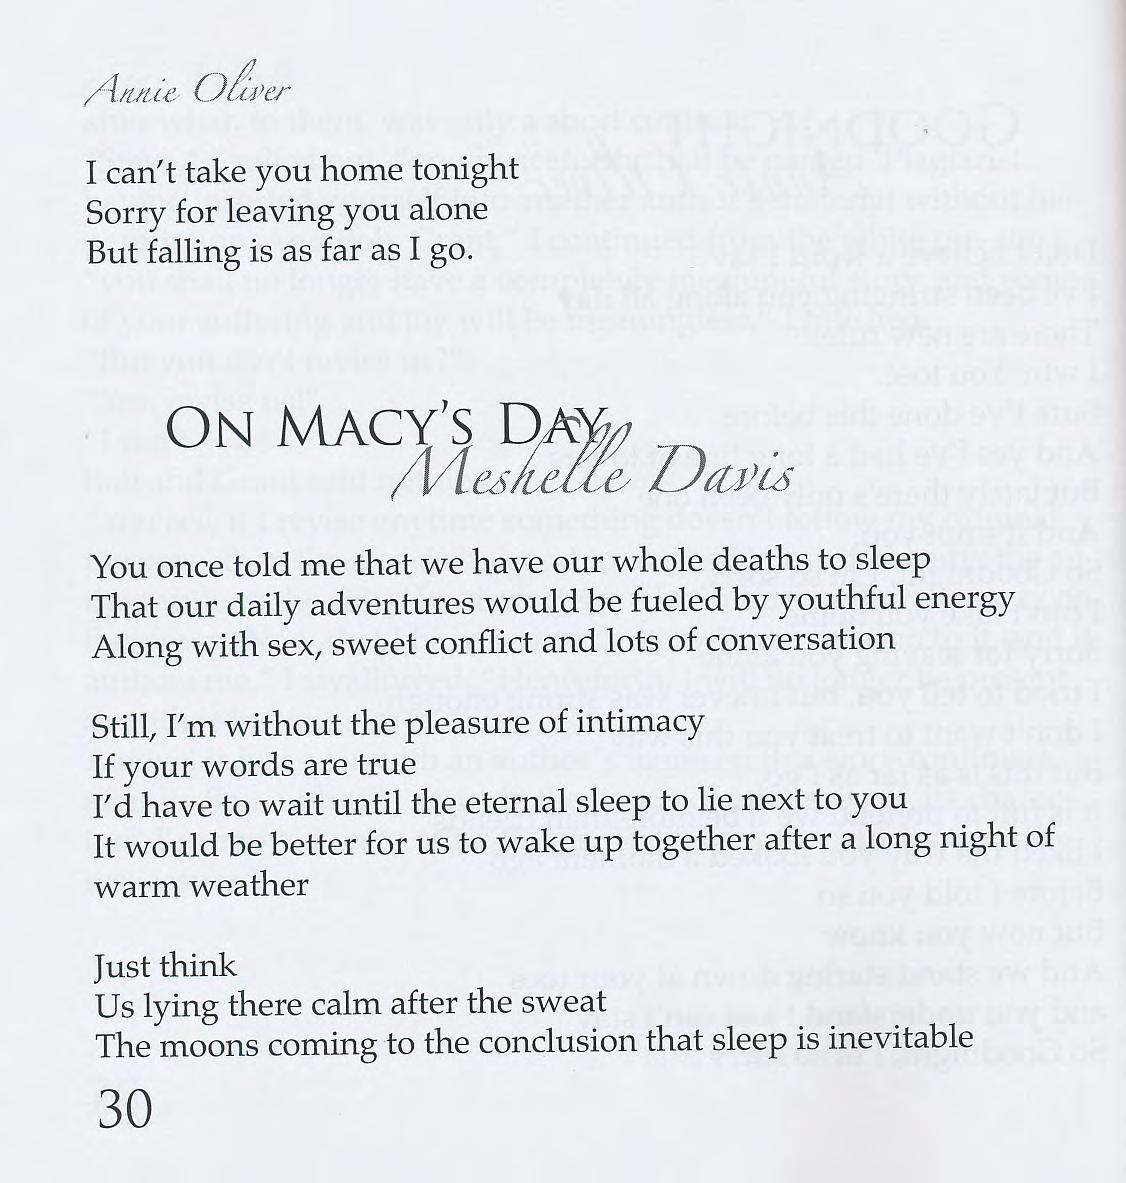 Annie Oliver
I can't take you home tonight
Sorry for leaving you alone
But falling is as far as I go.
ON MACY'S DAY
Meshelle Davis
You once told me that we have our whole deaths to sleep
That our daily adventures would be fueled by youthful energy
Along with sex, sweet conflict and lots of conversation
Still, I'm without the pleasure of intimacy
If your words are true
I'd have to wait until the eternal sleep to lie next to you
It would be better for us to wake up together after a long night of
warm weather
Just think
Us lying there calm after the sweat
The moons coming to the conclusion that sleep is inevitable
30